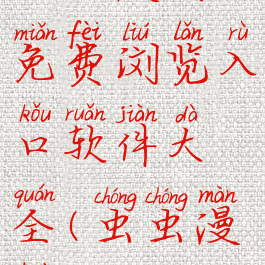 miǎn fèi liú lǎn rù
免费浏览入
kǒu ruǎn jiàn dà
口软件大
quán chóng chóng màn
全(虫虫漫